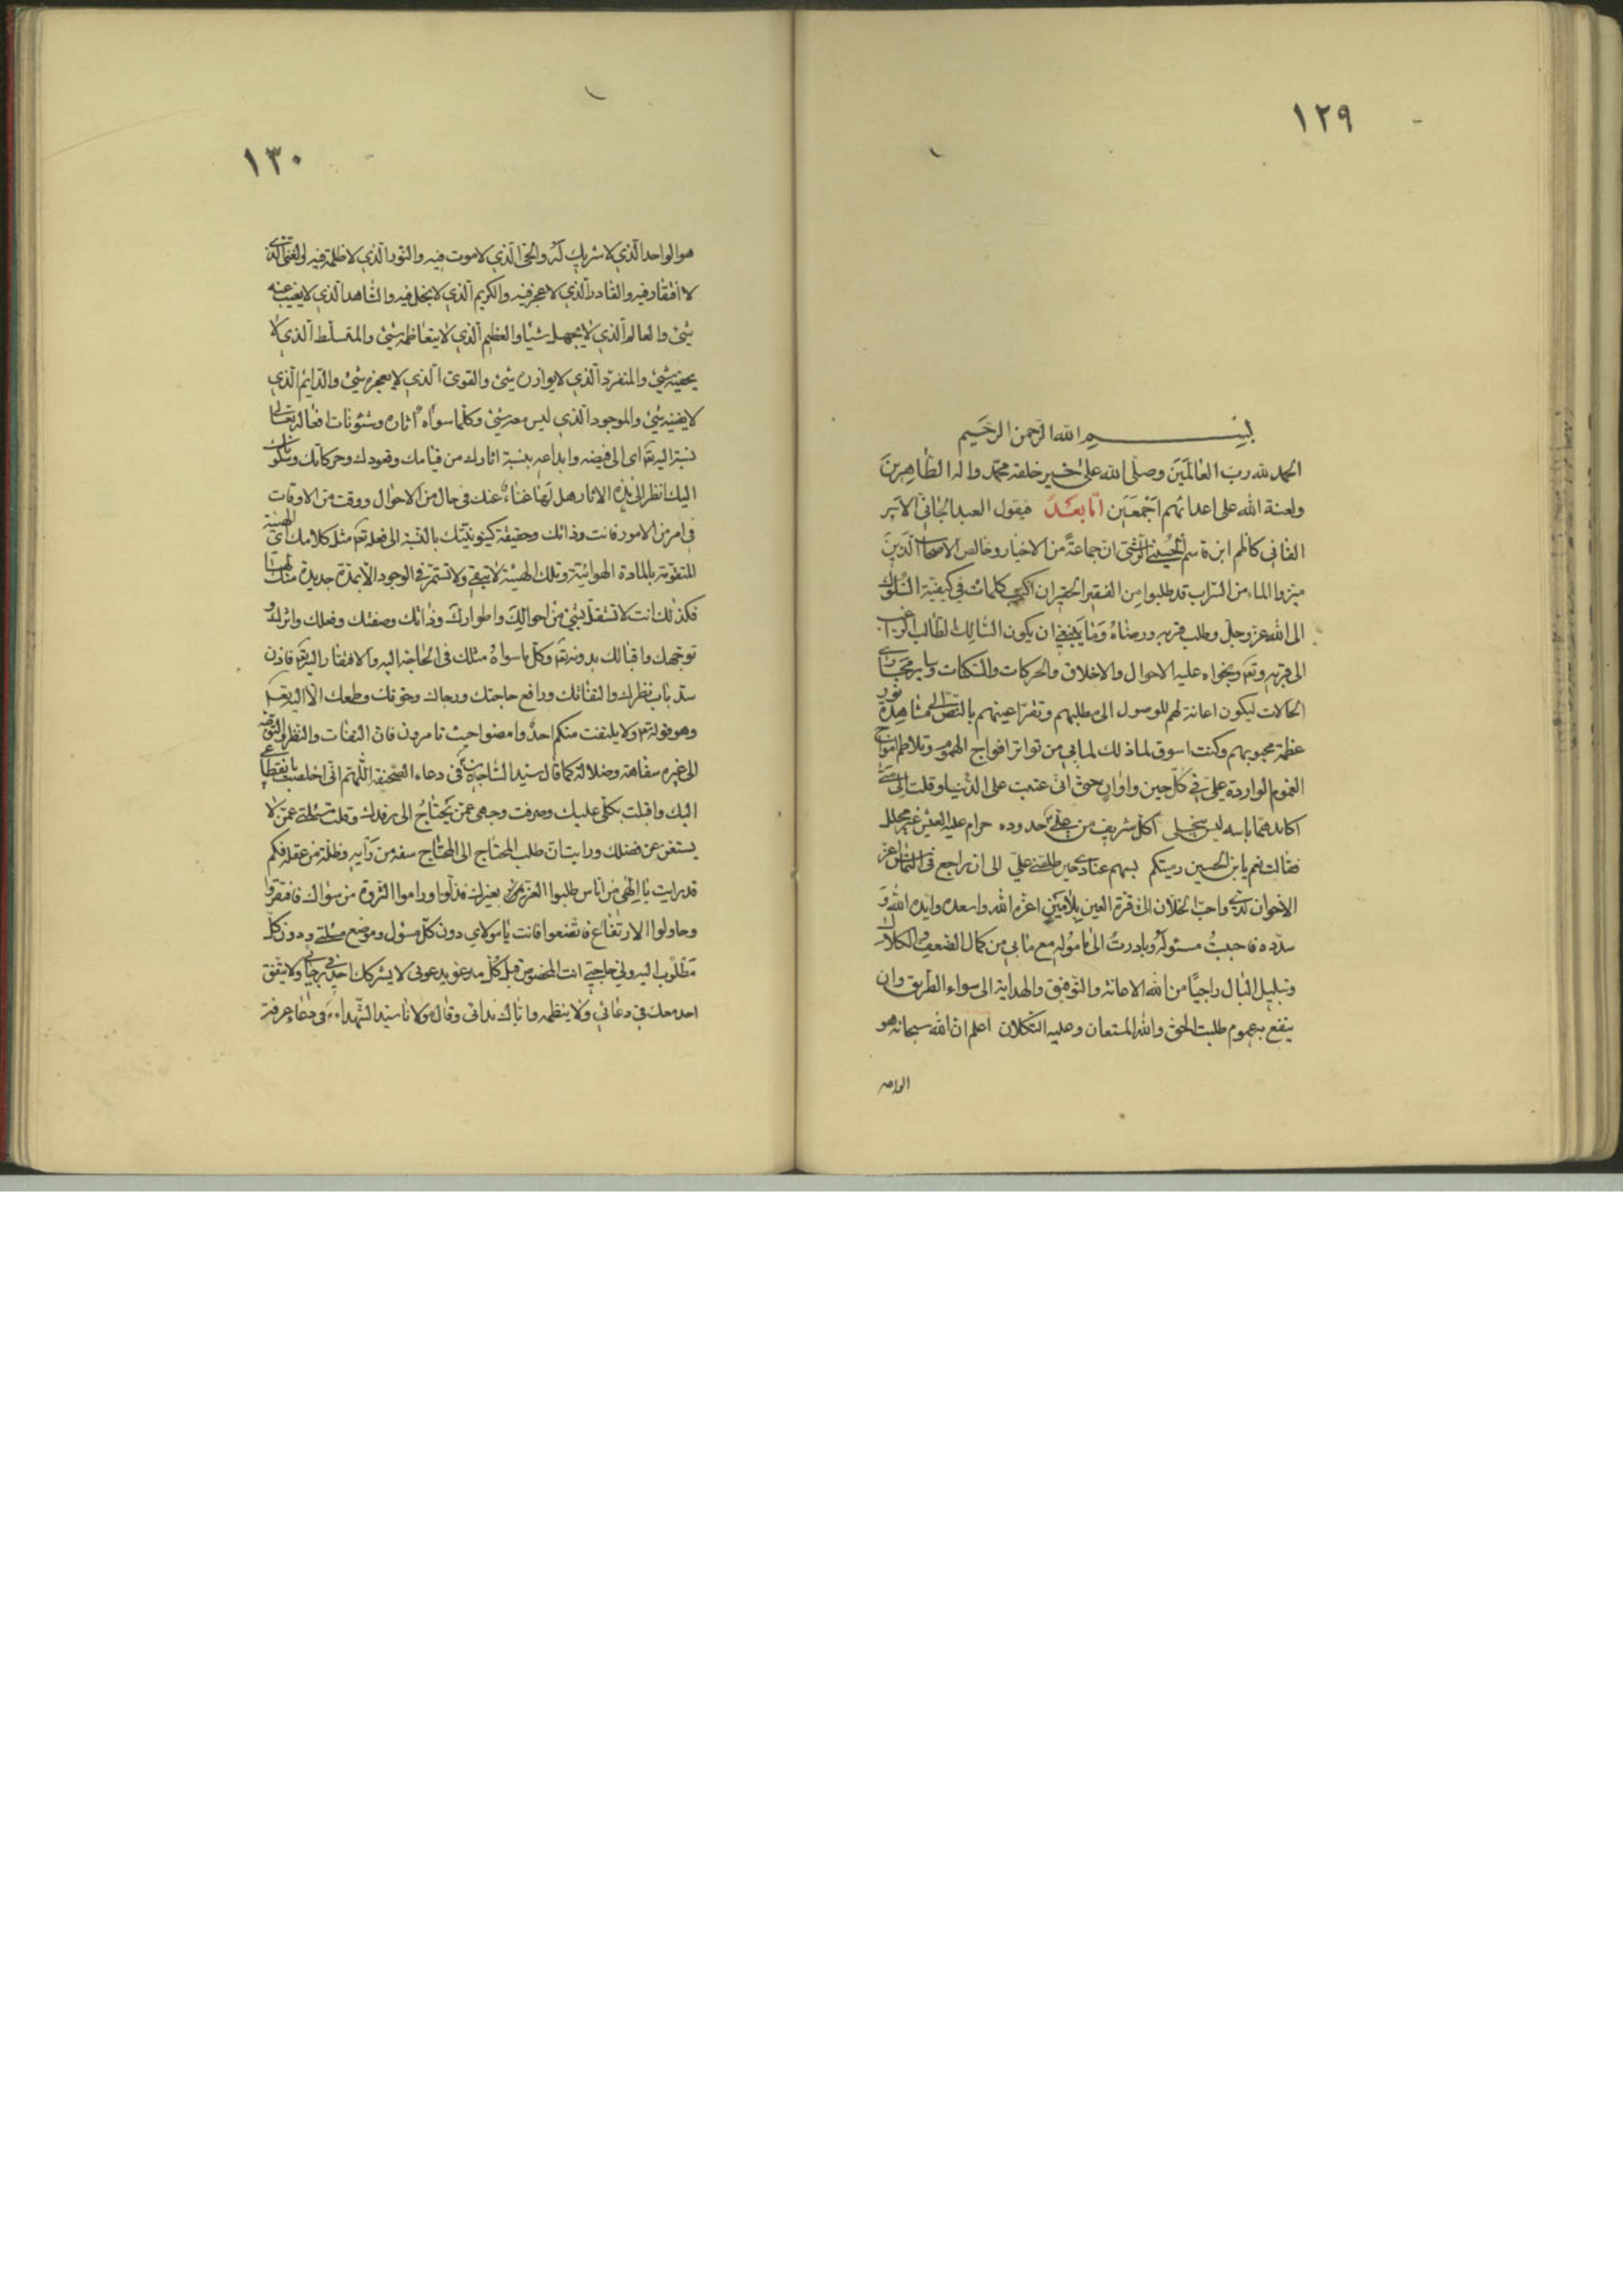 ١٢٩
بسم الله الرحمن الرحيم
الحمد لله رب العالمين وصلى الله على خير خلقه محمد واله الطاهرين
ولعنة الله على اعدائهم اجمعين اما بعد فيقول العبد الجاني الاسير
الفاني كاظم ابن قاسم الحسيني الرشتي ان جماعة من الاخيار وخالص الاصحاب الذين
ميزوا الماء من السراب قد طلبوا من الفقير الحقير ان اكتب كلمات في كيفية السلوك
الى الله عز وجل وطلب قربه ورضاه وما ينبغي ان يكون السالك الطالب الراغب
الى قربه وتع ويجواه عليه الاحوال والاخلاق والحركات والسكنات وساير مجاري
الحالات ليكون اعانة لهم للوصول الى مطلبهم وتقر اعينهم بالنظر الى مشاهدة نور
عظمة محبوبهم وكنت اسوق لماذلك لما بي من تواتر افواج الهموم وتلاطم امواج
الغموم الواردة علي في كل حين واوان حتى اني عتبت على الدنيا وقلت الى متى
اكابد هما باسه ليس ينجلي اكل شريف من علي جدوده حرام عليه العيش غير محلل
فقالت نعم يابن الحسين رميتكم بسهم عنادي حين طلقني علي الى ان راجع في التماس اعز
الاخوان لدي واحب الخلان الي قرة العين بلامين اعزه الله واسعده وايده الله و
سدده فاجبت مسئوله وبادرت الى مامولـه مع ما بي من كمال الضعف والكلال
وتبلبل البال راجيا من الله الاعانة والتوفيق والهداية الى سواء الطريق وان
ينفع به عموم طلبت الحق والله المستعان وعليه التكلان اعلم ان الله سبحانه هو
الواحد
١٣٠
هو الواحد الذي لا شريك له والحي الذي لا موت فيه والنور الذي لا ظلمة فيه والغني الذي
لا افتقار فيه والقادر الذي لا عجز فيه والكريم الذي لا بخل فيه والشاهد الذي لا يغيب عنه
شيئ والعالم الذي لا يجهل شيئا والعظيم الذي لا يتعاظمه شيئ والمتسلط الذي لا
شيئ والمتفرد الذي لا يوازن شيئ والقوي الذي لا يعجزه شيئ والدايم الذي
لا يفنيه شيئ والموجود الذي ليس معه شيئ وكلما سواه اثاره وشئونات افعاله تعالى
نسبة اليه تع اى الى فيضه وابداعه بنسبة اثارك من قيامك وقعودك وحركاتك وسكونك
اليك انظر الى هذه الاثار هل لها غناء عنك في حال من الاحوال ووقت من الاوقات
في امر من الامور فانت وذاتك وحقيقة كينونيتك بالنسبة الى فعله تع مثل كلامك اى الهيئة
المتقومة بالمادة الهوائية وتلك الهيئة لا تبقى ولا تستمر في الوجود الا بمدة جديدة منك لها
فكذلك انت لا تستقل بشيئ من احوالك واطوارك وذاتك وصفتك وفعلك واثرك و
توجهك واقبالك بدونه تع وكل ما سواه مثلك في الحاجة اليه والافتقار اليه تع فاذن
سد باب نظرك والتفاتك ورافع حاجتك ورجاك وخوفك وطمعك الا اليه تعـ
وهو قوله تع ولا يلتفت منكم احد وامضوا حيث تؤمرون فان التفات والنظر والتوجه
الى غيره سفاهة وضلالة كما قال سيد الساجدين في دعاء الصحيفة اللهم اني اخلصت بانقطاعي
اليك واقبلت بكلي عليك وصرفت وجهى عمن يحتاج الى رفدك وقلبت مسئلتي عمن لا
يستغن عن فضلك ورايت ان طلب المحتاج الى المحتاج سفه من رأيه وظلة من عقله فكم
قد رايت يا الهي من اناس طلبوا العز بغيرك فذلوا وراموا الثروة من سواك فافتقروا
وحاولوا الارتفاع فاتضعوا فانت يا مولاي دون كل مسئول وموضع مسئلتي ودون كل
مطلوب اليه ولي حاجتي انت المخصوص قبل كل مدعو بدعوتى لا يشركك احد في رجائي ولا يتفق
احد معك في دعائي ولا ينظمه واياك ندائى وقال مولانا سيد الشهداء في دعاء عرفة